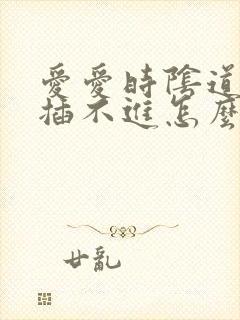 愛愛時陰道
插不進怎麼
廿亂